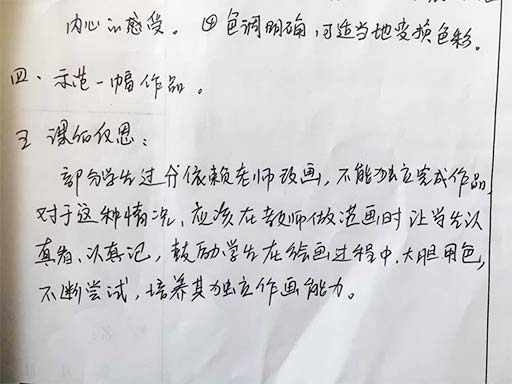 内心的感受。④色调明确,可适当地变换色彩。
四、示范一幅作品。
五 课后反思:
部分学生过分依赖老师改画,不能独立完成作品,
对于这种情况,应该在教师做范画时让学生认
真看、认真记,鼓励学生在绘画过程中,大胆用色,
不断尝试,培养其独立作画能力。